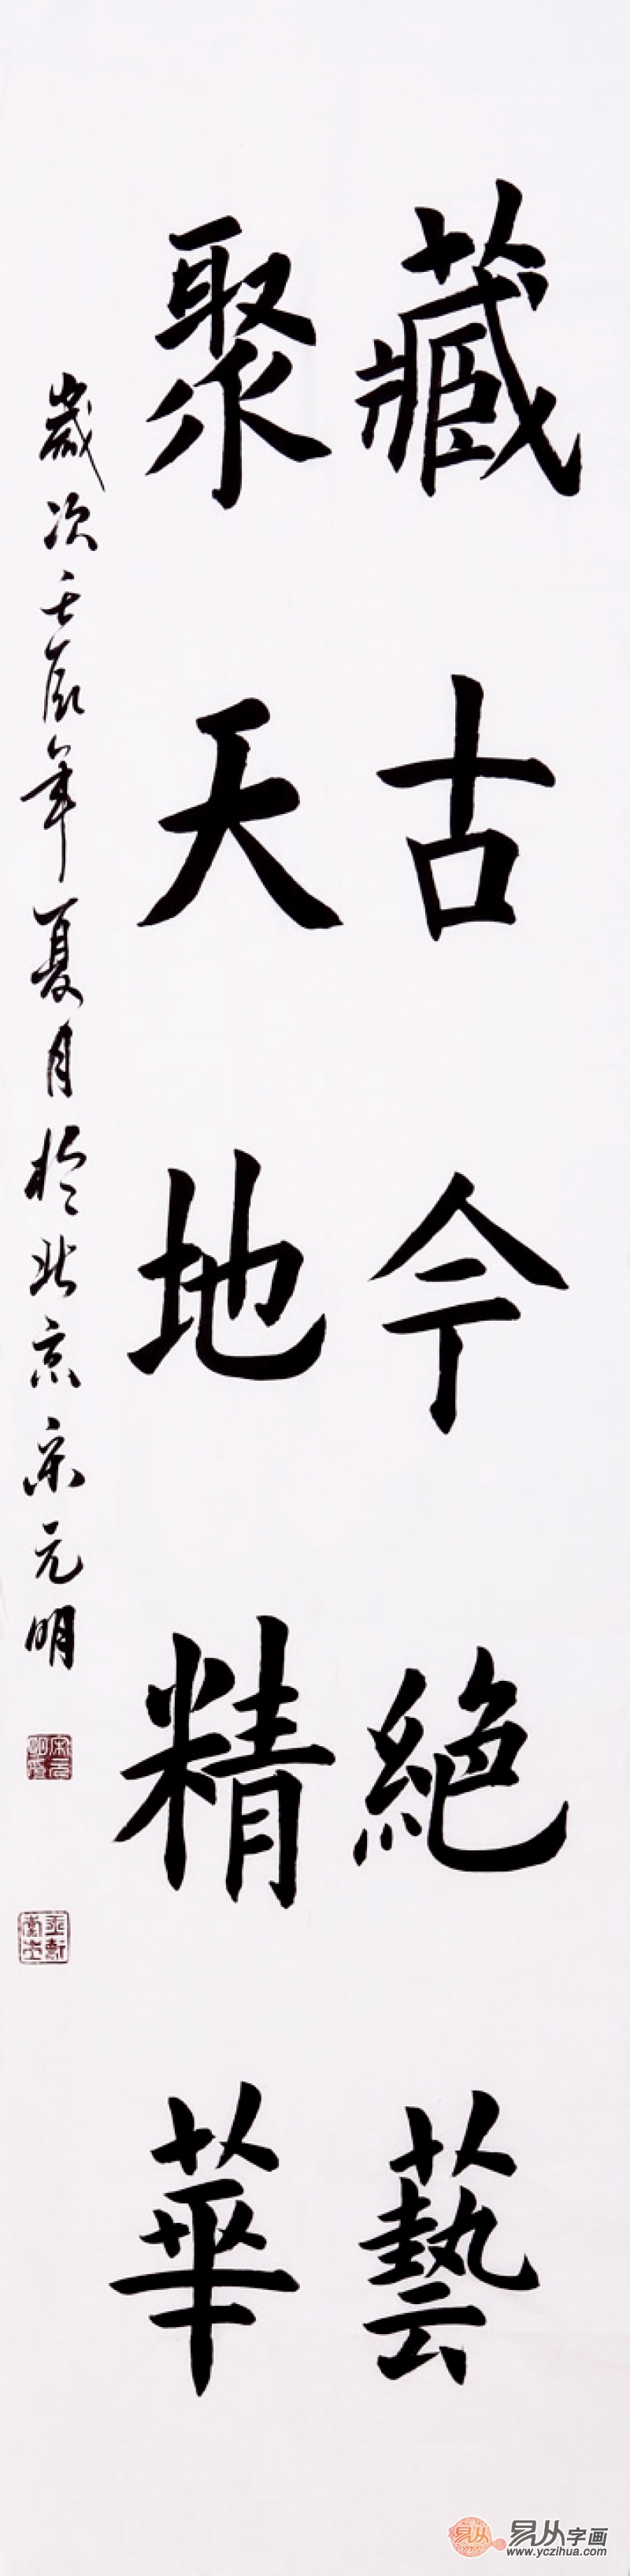 藏古今絕藝
聚天地精華
歲次壬辰年夏月於北京宋元明
易从字画
www.yczihua.com